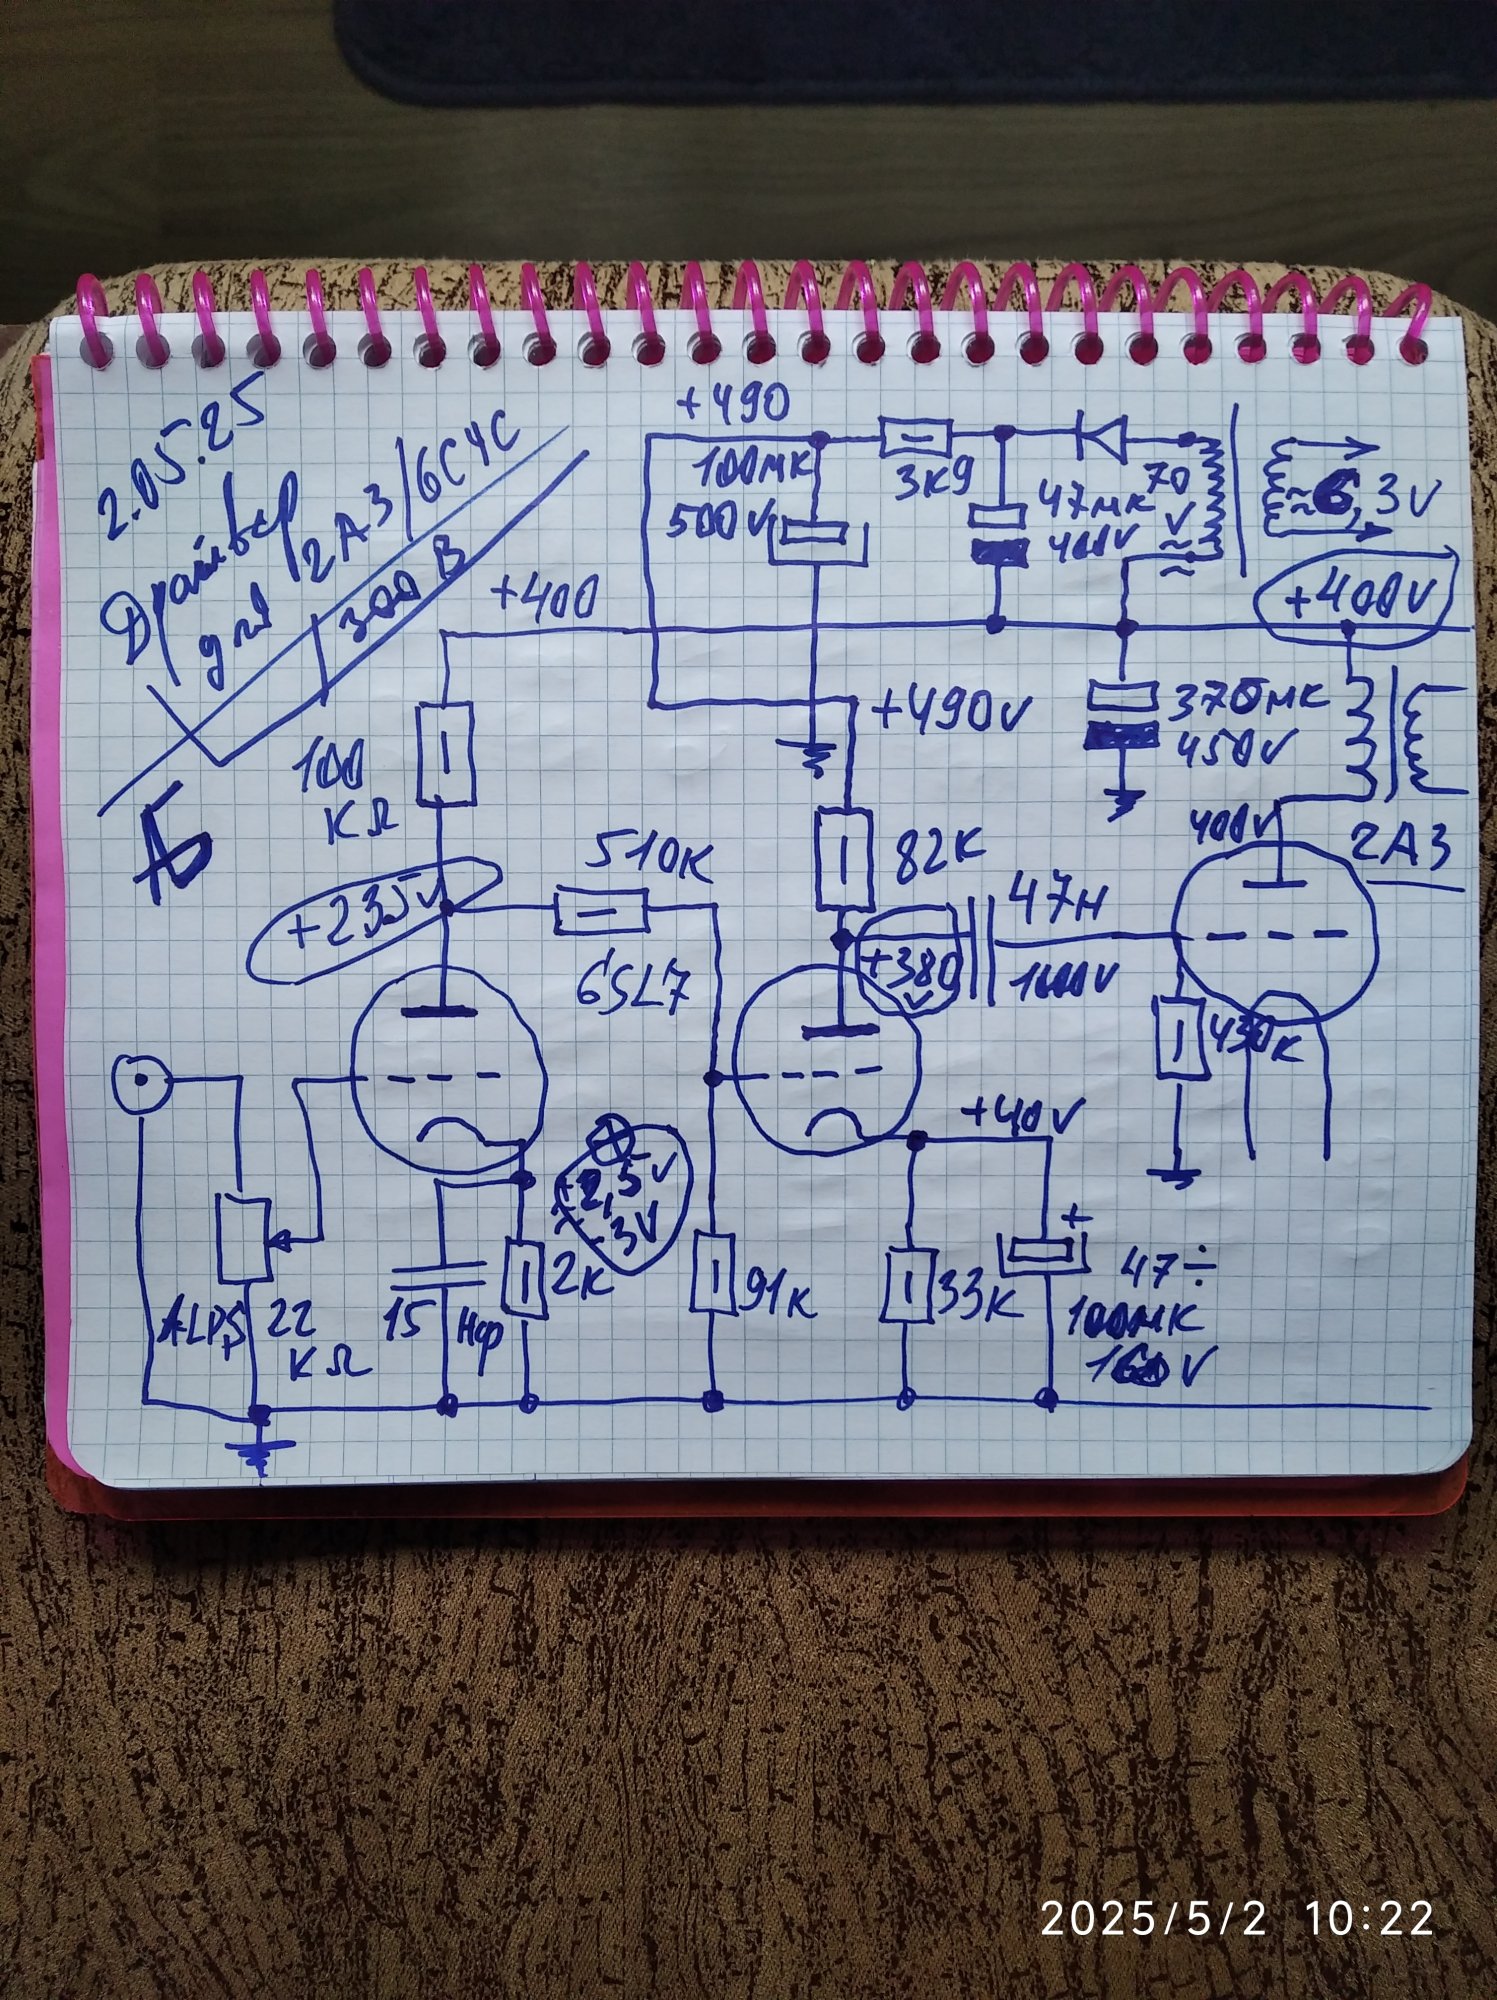 2.05.25
Драйвер
для 2А3/6С4С
300В
АБ
+490
100мк
500v
3К9
47мк
70
v
≈
≈6,3v
+400
+400v
+490v
370мк
450v
100
КΩ
400v
2А3
510к
82к
+235v
6SL7
+380
v
47н
1600v
430к
+40v
+2,5v
-3v
2к
ALPS 22
КΩ
15 Нф
91к
33к
+
47÷
100мк
160v
2025/5/2 10:22